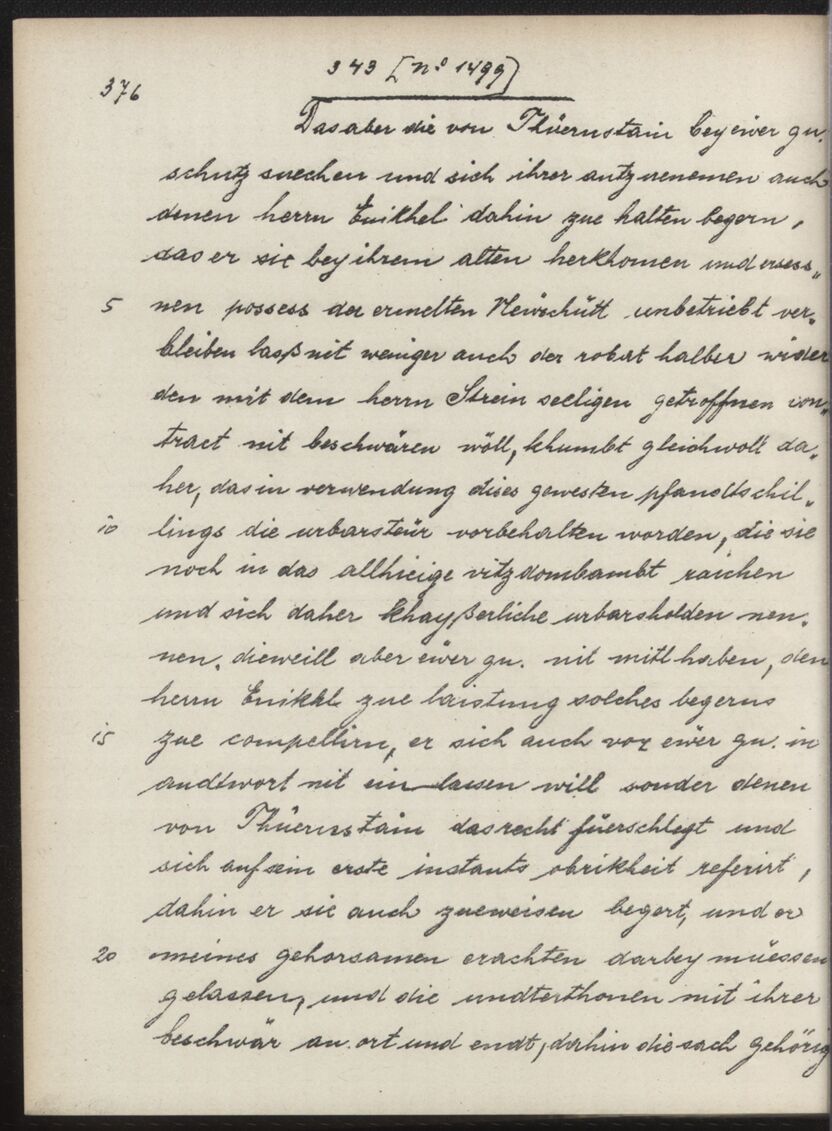 376
343 [No 1499]
Das aber die von Thüernstain bey ewer gu.
schutz suechen und sich ihrer antzunenemen auch
denen herrn Enikhel dahin zue halten begern,
das er sie bey ihrem alten herkhomen und ersess„
5 nen possess der ermelten Newschütt unbetriebt ver„
bleiben lass nit weniger auch der robat halber wider
den mit dem herrn Strein seeligen getroffnen con„
tract nit beschwären wöll, khumbt gleichwoll da„
her, das in verwendung dises gewesten pfandtschil„
10 lings die urbarsteür vorbehalten worden, die sie
noch in das allhieige vitzdombambt raichen
und sich daher khayßerliche urbarsholden nen„
nen. dieweill aber ewer gu. nit mitl haben, den
herrn Enikhl zue laistung solches begerns
15 zue compellirn, er sich auch vor ewer gu. in
andtwort nit ein lassen will sonder denen
von Thüernstain das recht füerschlegt und
sich auf sein erste instants obrikheit referirt,
dahin er sie auch zueweisen begert, und er
20 meines gehorsamen erachten darbey müessen
gelassen, und die underthonen mit ihrer
beschwär an ort und endt, dahin die sach gehörig